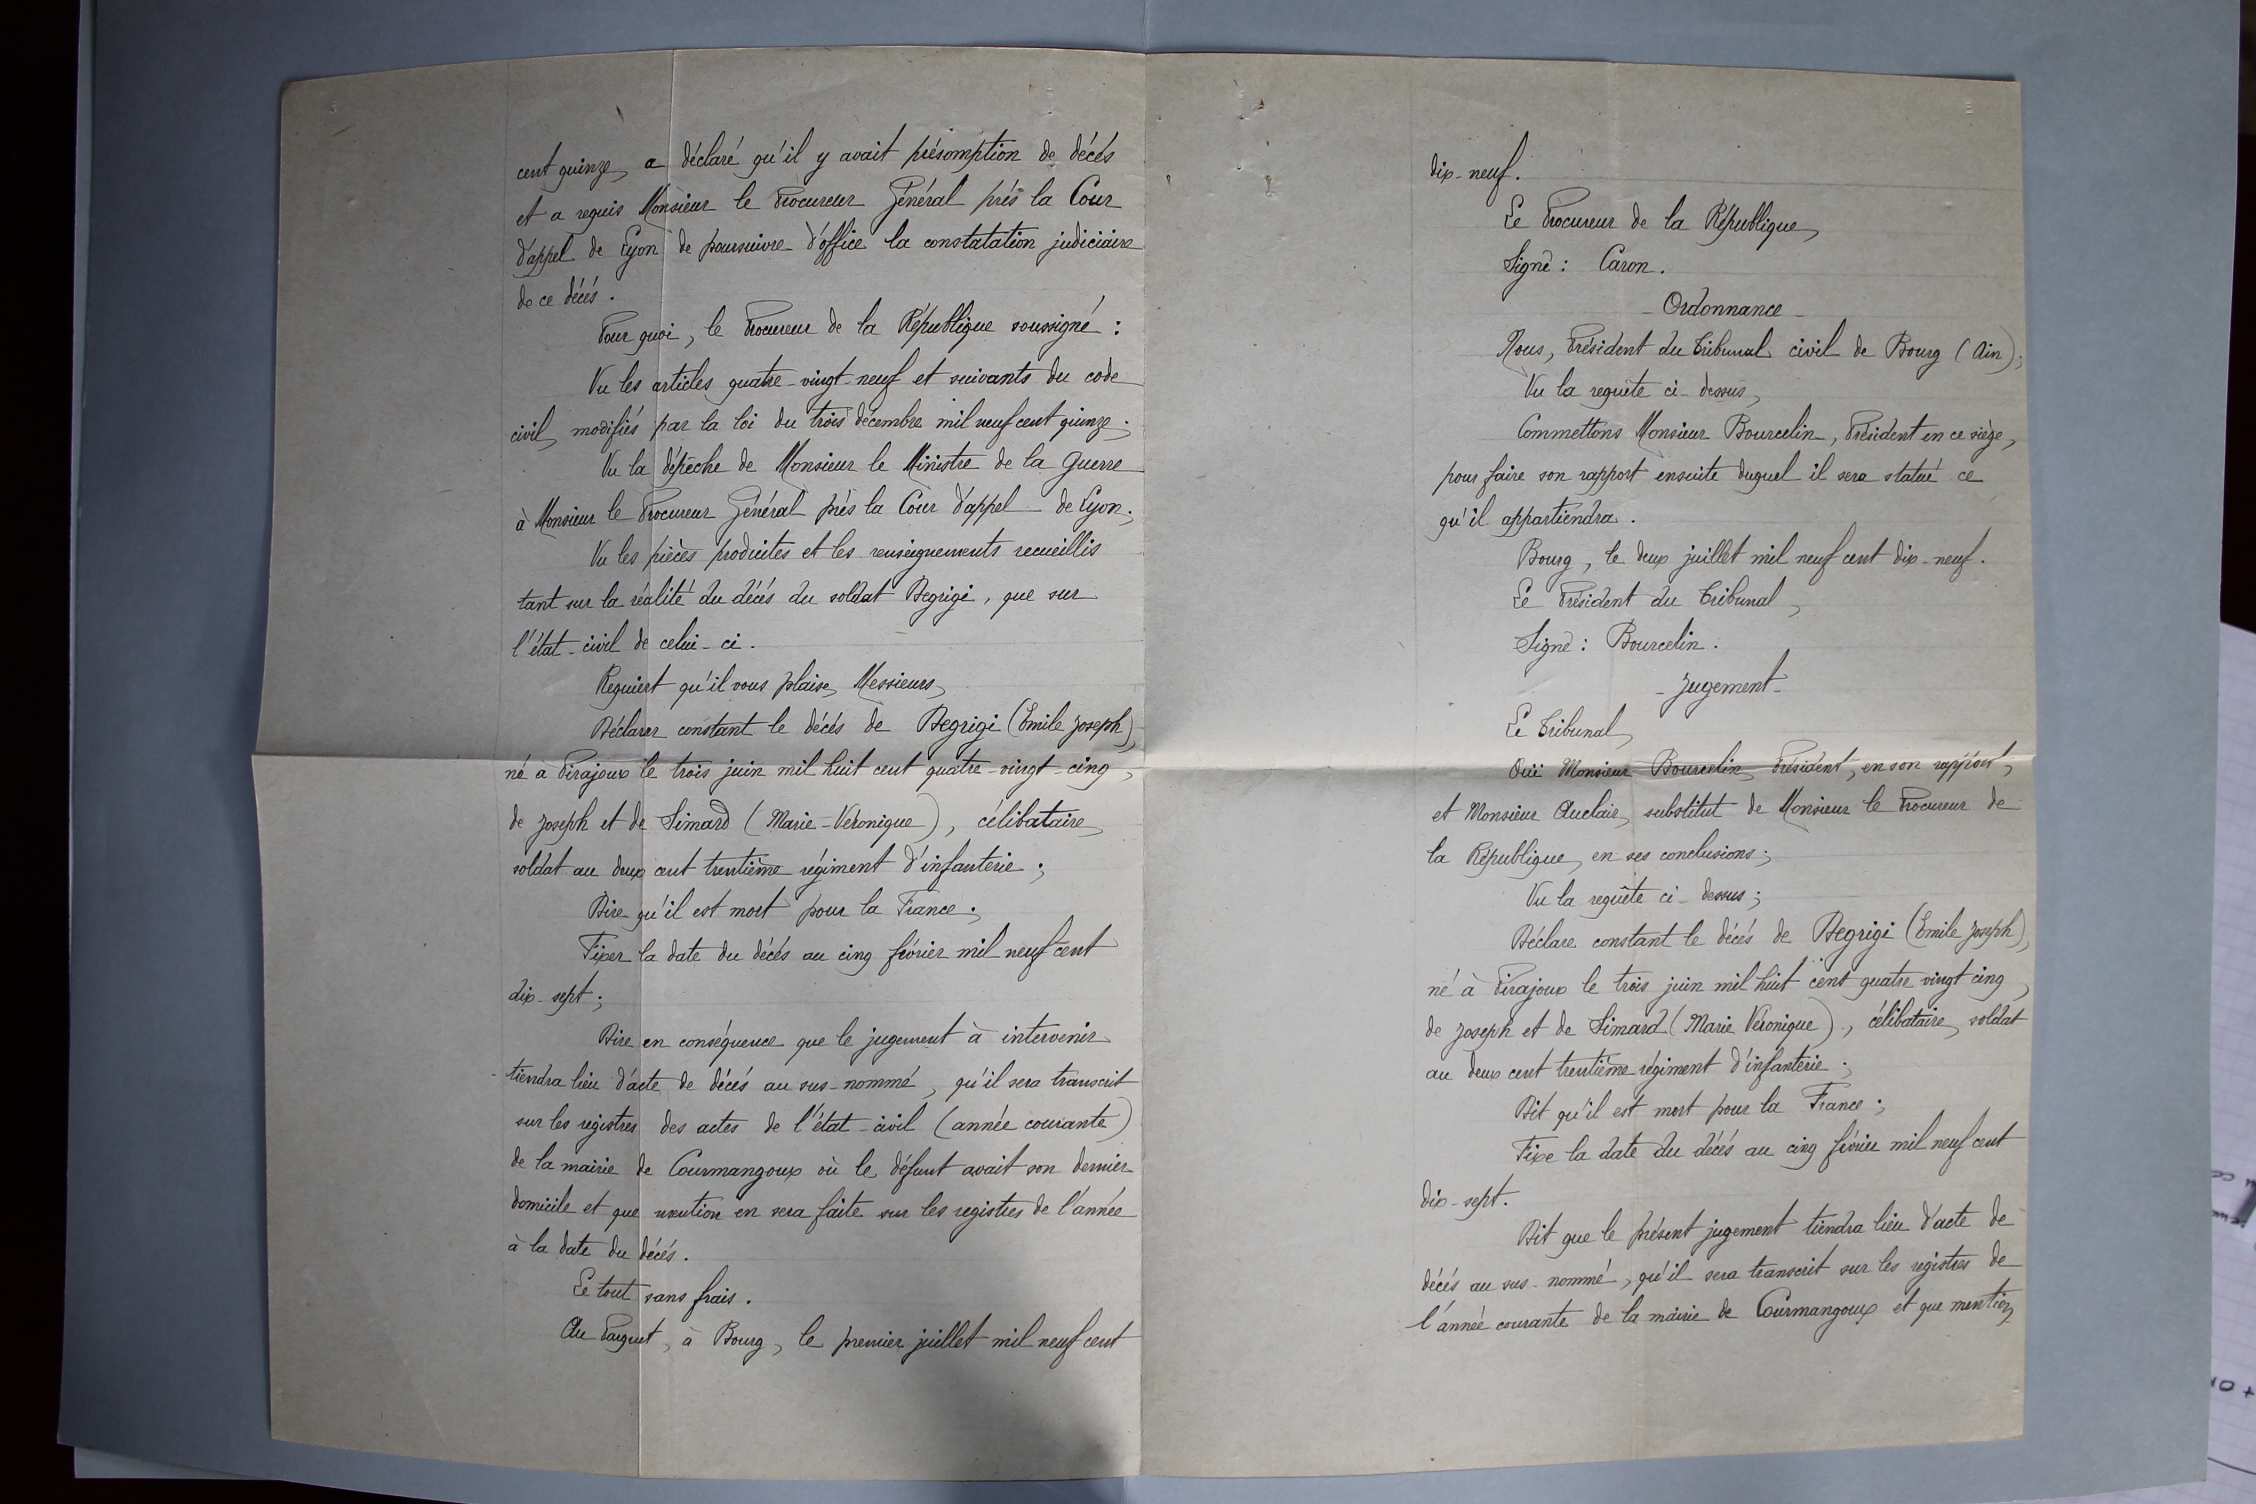 cent quinze, a déclaré qu'il y avait présomption de décés
et a requis Monsieur le Procureur Général prés la Cour
d'appel de Lyon de poursuivre d'office la constatation judiciaire
de ce décés.
Pour quoi, le Procureur de la République soussigné :
Vu les articles quatre-vingt-neuf et suivants du code
civil, modifiés par la loi du trois décembre mil neuf cent quinze ;
Vu la dépêche de Monsieur le Ministre de la Guerre
à Monsieur le Procureur Général prés la Cour d'appel de Lyon ;
Vu les pièces produites et les renseignements recueillis
tant sur la réalité du décés du soldat Degrigi, que sur
l'état-civil de celui-ci.
Requiert qu'il vous plaise, Messieurs,
Déclarer constant le décés de Degrigi (Emile Joseph),
né à Pirajoux le trois juin mil huit cent quatre-vingt-cinq,
de Joseph et de Simard (Marie-Véronique), célibataire,
soldat au deux cent trentième régiment d'infanterie ;
Dire qu'il est mort pour la France ;
Fixer la date du décés au cinq février mil neuf cent
dix-sept ;
Dire en conséquence que le jugement à intervenir
tiendra lieu d'acte de décés au sus-nommé, qu'il sera transcrit
sur les registres des actes de l'état-civil (année courante)
de la mairie de Courmangoux où le défunt avait son dernier
domicile et que mention en sera faite sur les registres de l'année
à la date du décés.
Le tout sans frais.
Au Parquet, à Bourg, le premier juillet mil neuf cent
dix-neuf.
Le Procureur de la République,
Signé : Caron.
- Ordonnance -
Nous, Président du Tribunal civil de Bourg (Ain) ;
Vu la requête ci-dessus,
Commettons Monsieur Bourcelin, Président en ce siège,
pour faire son rapport ensuite duquel il sera statué ce
qu'il appartiendra.
Bourg, le deux juillet mil neuf cent dix-neuf.
Le Président du Tribunal,
Signé : Bourcelin.
- Jugement -
Le Tribunal,
Ouï Monsieur Bourcelin, Président, en son rapport,
et Monsieur Auclair, substitut de Monsieur le Procureur de
la République, en ses conclusions ;
Vu la requête ci-dessus ;
Déclare constant le décés de Degrigi (Emile Joseph),
né à Pirajoux le trois juin mil huit cent quatre vingt cinq,
de Joseph et de Simard (Marie Véronique), célibataire, soldat
au deux cent trentième régiment d'infanterie ;
Dit qu'il est mort pour la France ;
Fixe la date du décés au cinq février mil neuf cent
dix-sept.
Dit que le présent jugement tiendra lieu d'acte de
décés au sus-nommé, qu'il sera transcrit sur les registres de
l'année courante de la mairie de Courmangoux et que mention